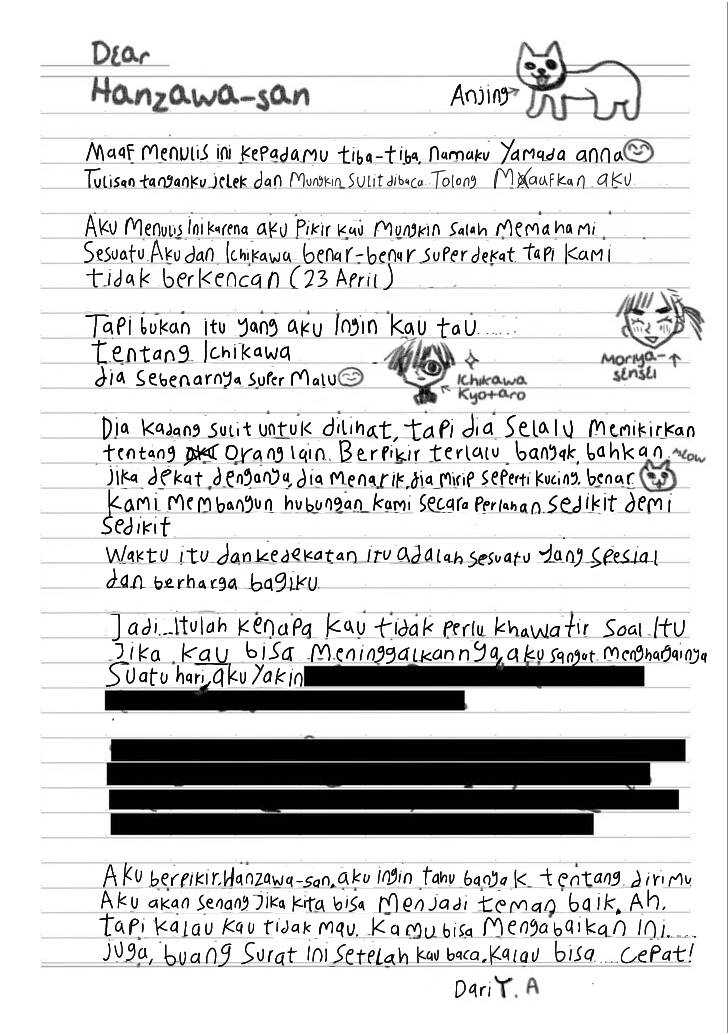 Dear
Hanzawa-san
Anjing
Maaf menulis ini kepadamu tiba-tiba, namaku Yamada anna
Tulisan tanganku jelek dan mungkin sulit dibaca. Tolong maafkan aku
Aku menulis ini karena aku pikir kau mungkin salah memahami
sesuatu Aku dan Ichikawa benar-benar super dekat tapi kami
tidak berkencan (23 April)
Tapi bukan itu yang aku ingin kau tau......
tentang Ichikawa
dia sebenarnya super malu
Ichikawa
Kyotaro
Moriya-
sensei
Dia kadang sulit untuk dilihat, tapi dia selalu memikirkan
tentang orang lain. Berpikir terlalu banyak, bahkan
jika dekat denganya, dia menarik, dia mirip seperti kucing, benar
kami membangun hubungan kami secara perlahan, sedikit demi
sedikit
Waktu itu dan kedekatan itu adalah sesuatu yang spesial
dan berharga bagiku
Jadi...Itulah kenapa kau tidak perlu khawatir soal itu
Jika kau bisa meninggalkannya, aku sangat menghargainya
Suatu hari, aku yakin
Aku berpikir, Hanzawa-san, aku ingin tahu banyak tentang dirimu
Aku akan senang jika kita bisa menjadi teman baik. Ah,
tapi kalau kau tidak mau, kamu bisa mengabaikan ini.....
juga, buang surat ini setelah kau baca. Kalau bisa... cepat!
Dari Y. A